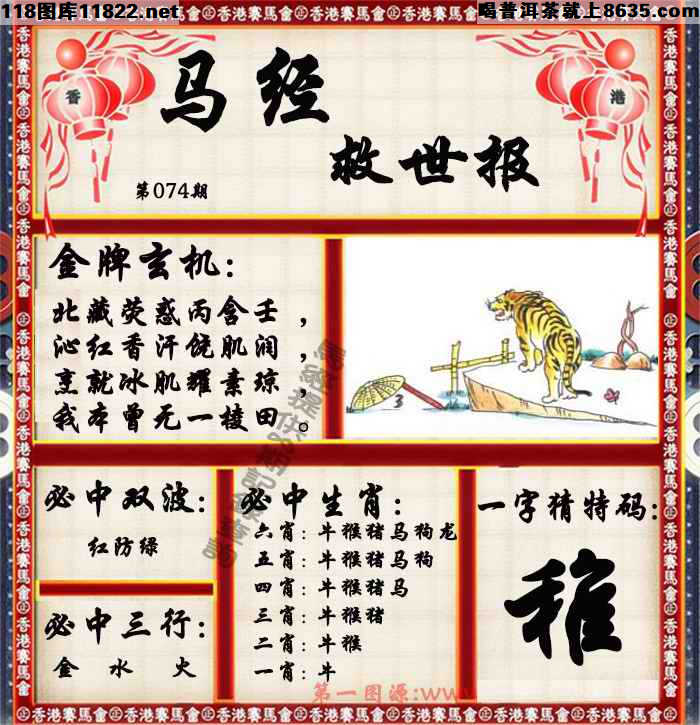 118图库11822.net
喝普洱茶就上8635.com
香
港
马经
救世报
第074期
金牌玄机:
北藏荧惑丙含壬，
沁红香汗饶肌润，
烹就冰肌耀素琼，
我本曾无一棱田。
3
必中双波:
红防绿
必中三行:
金 水 火
必中生肖:
六肖:牛猴猪马狗龙
五肖:牛猴猪马狗
四肖:牛猴猪马
三肖:牛猴猪
二肖:牛猴
一肖:牛
一字猜特码:
稚
第一图源:www
香港賽馬會